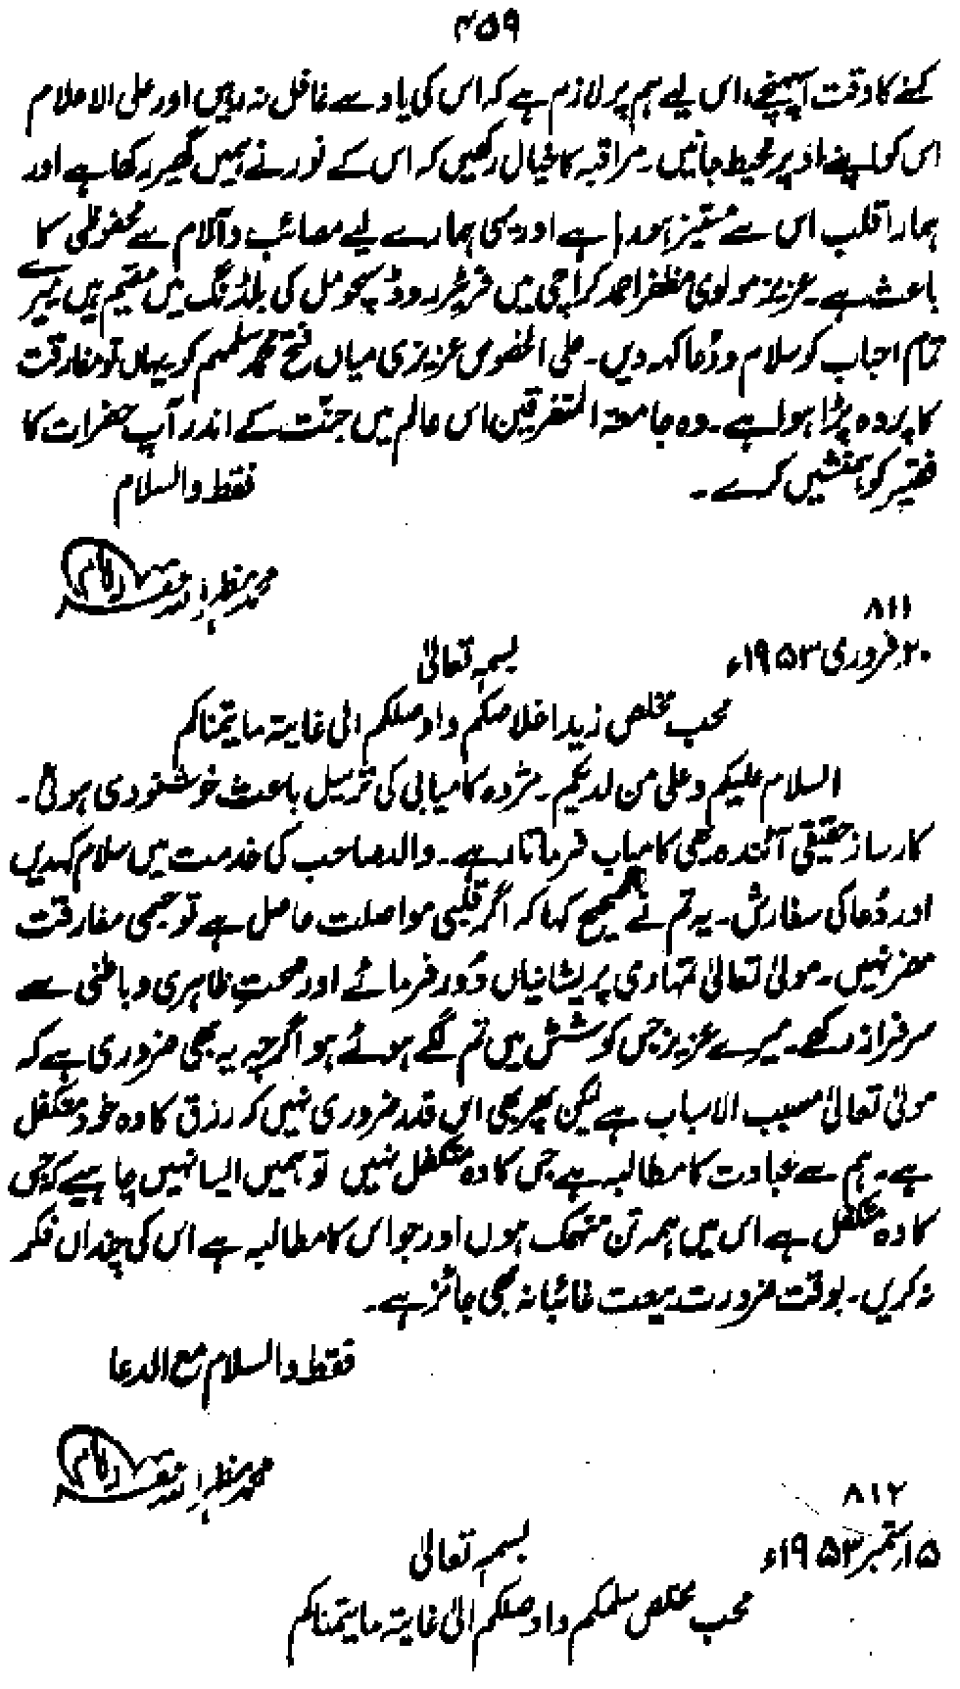 ۴۵۹
کہنے کا وقت آپہنچے، اس لیے ہم پر لازم ہے کہ اس کی یاد سے غافل نہ رہیں اور علی الاعلام
اس کو اپنے اوپر محیط جانیں۔ مراقبہ کا خیال رکھیں کہ اس کے نور نے ہمیں گھیر رکھا ہے اور
ہمارا قلب اس سے مستنیز ہو رہا ہے اور یہی ہمارے لیے مصائب و آلام سے محفوظی کا
باعث ہے۔ عزیز مولوی مظفر احمد کراچی میں فریئر روڈ پچومل کی بلڈنگ میں مقیم ہیں میرے
تمام احباب کو سلام و دُعا کہہ دیں۔ علی الخصوص عزیزی میاں فتح محمد سلمہم کو یہاں تو مفارقت
کا پردہ پڑا ہوا ہے۔ وہ جامعۃ المتفرقین اس عالم میں جنّت کے اندر آپ حضرات کا
فقیر کو ہمنشیں کرے۔
فقط والسلام
محمد مظہر اللہ
۸۱۱
۲۰؍فروری ۱۹۵۳ء
بسمہٖ تعالیٰ
محب مخلص زید اخلاصکم واوصلکم الیٰ غایتہ مایتمناکم
السلام علیکم وعلی من لدیکم۔ مژدہ کامیابی کی ترسیل باعث خوشنودی ہوئی۔
کارساز حقیقی آئندہ بھی کامیاب فرماتا رہے۔ والد صاحب کی خدمت میں سلام کہدیں
اور دُعا کی سفارش۔ یہ تم نے صحیح کہا کہ اگر قلبی مواصلت حاصل ہے تو جسمی مفارقت
مضر نہیں۔ مولیٰ تعالیٰ تمہاری پریشانیاں دُور فرمائے اور صحتِ ظاہری و باطنی سے
سرفراز رکھے۔ میرے عزیز جس کوشش میں تم لگے ہوئے ہو اگرچہ یہ بھی ضروری ہے کہ
مولیٰ تعالیٰ مسبب الاسباب ہے لیکن پھر بھی اس قدر ضروری نہیں کہ رزق کا وہ خود متکفل
ہے۔ ہم سے عبادت کا مطالبہ ہے جس کا وہ متکفل نہیں تو ہمیں ایسا نہیں چاہیے کہ جس
کا وہ متکفل ہے اس میں ہمہ تن منہمک ہوں اور جو اس کا مطالبہ ہے اس کی چنداں فکر
نہ کریں۔ بوقت ضرورت بیعت غائبانہ بھی جائز ہے۔
فقط والسلام مع الدعا
محمد مظہر اللہ
۸۱۲
۱۵؍ستمبر ۱۹۵۳ء
بسمہٖ تعالیٰ
محب مخلص سلمکم واوصلکم الیٰ غایتہ مایتمناکم